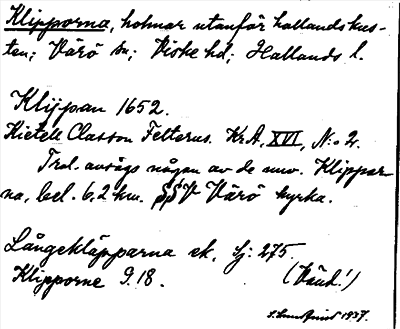 Klipporna, holmar utanför hallandskus-
ten; Värö sn; Viske hd; Hallands l.
Klippan 1652.
Kietell Classon Felterus. Kr.A, XVI, N:o 2.
Trol. avsågs någon av de nuv. Klippor-
na, bel. 6,2 km. SSV Värö kyrka.
Långeklipporna ek. Sj: 275.
Klipporne G. 18. (Vänd!)
1937.